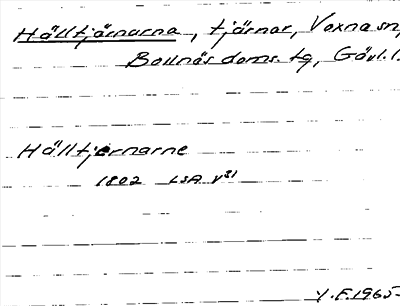 Hälltjärnarna, tjärnar, Voxna sn,
Bollnäs doms. tg, Gävl. l.
Hälltjernarne
1802 LSA V31
Y. F. 1965